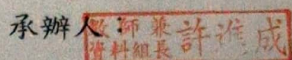 承辦人：教師兼資料組長許進成